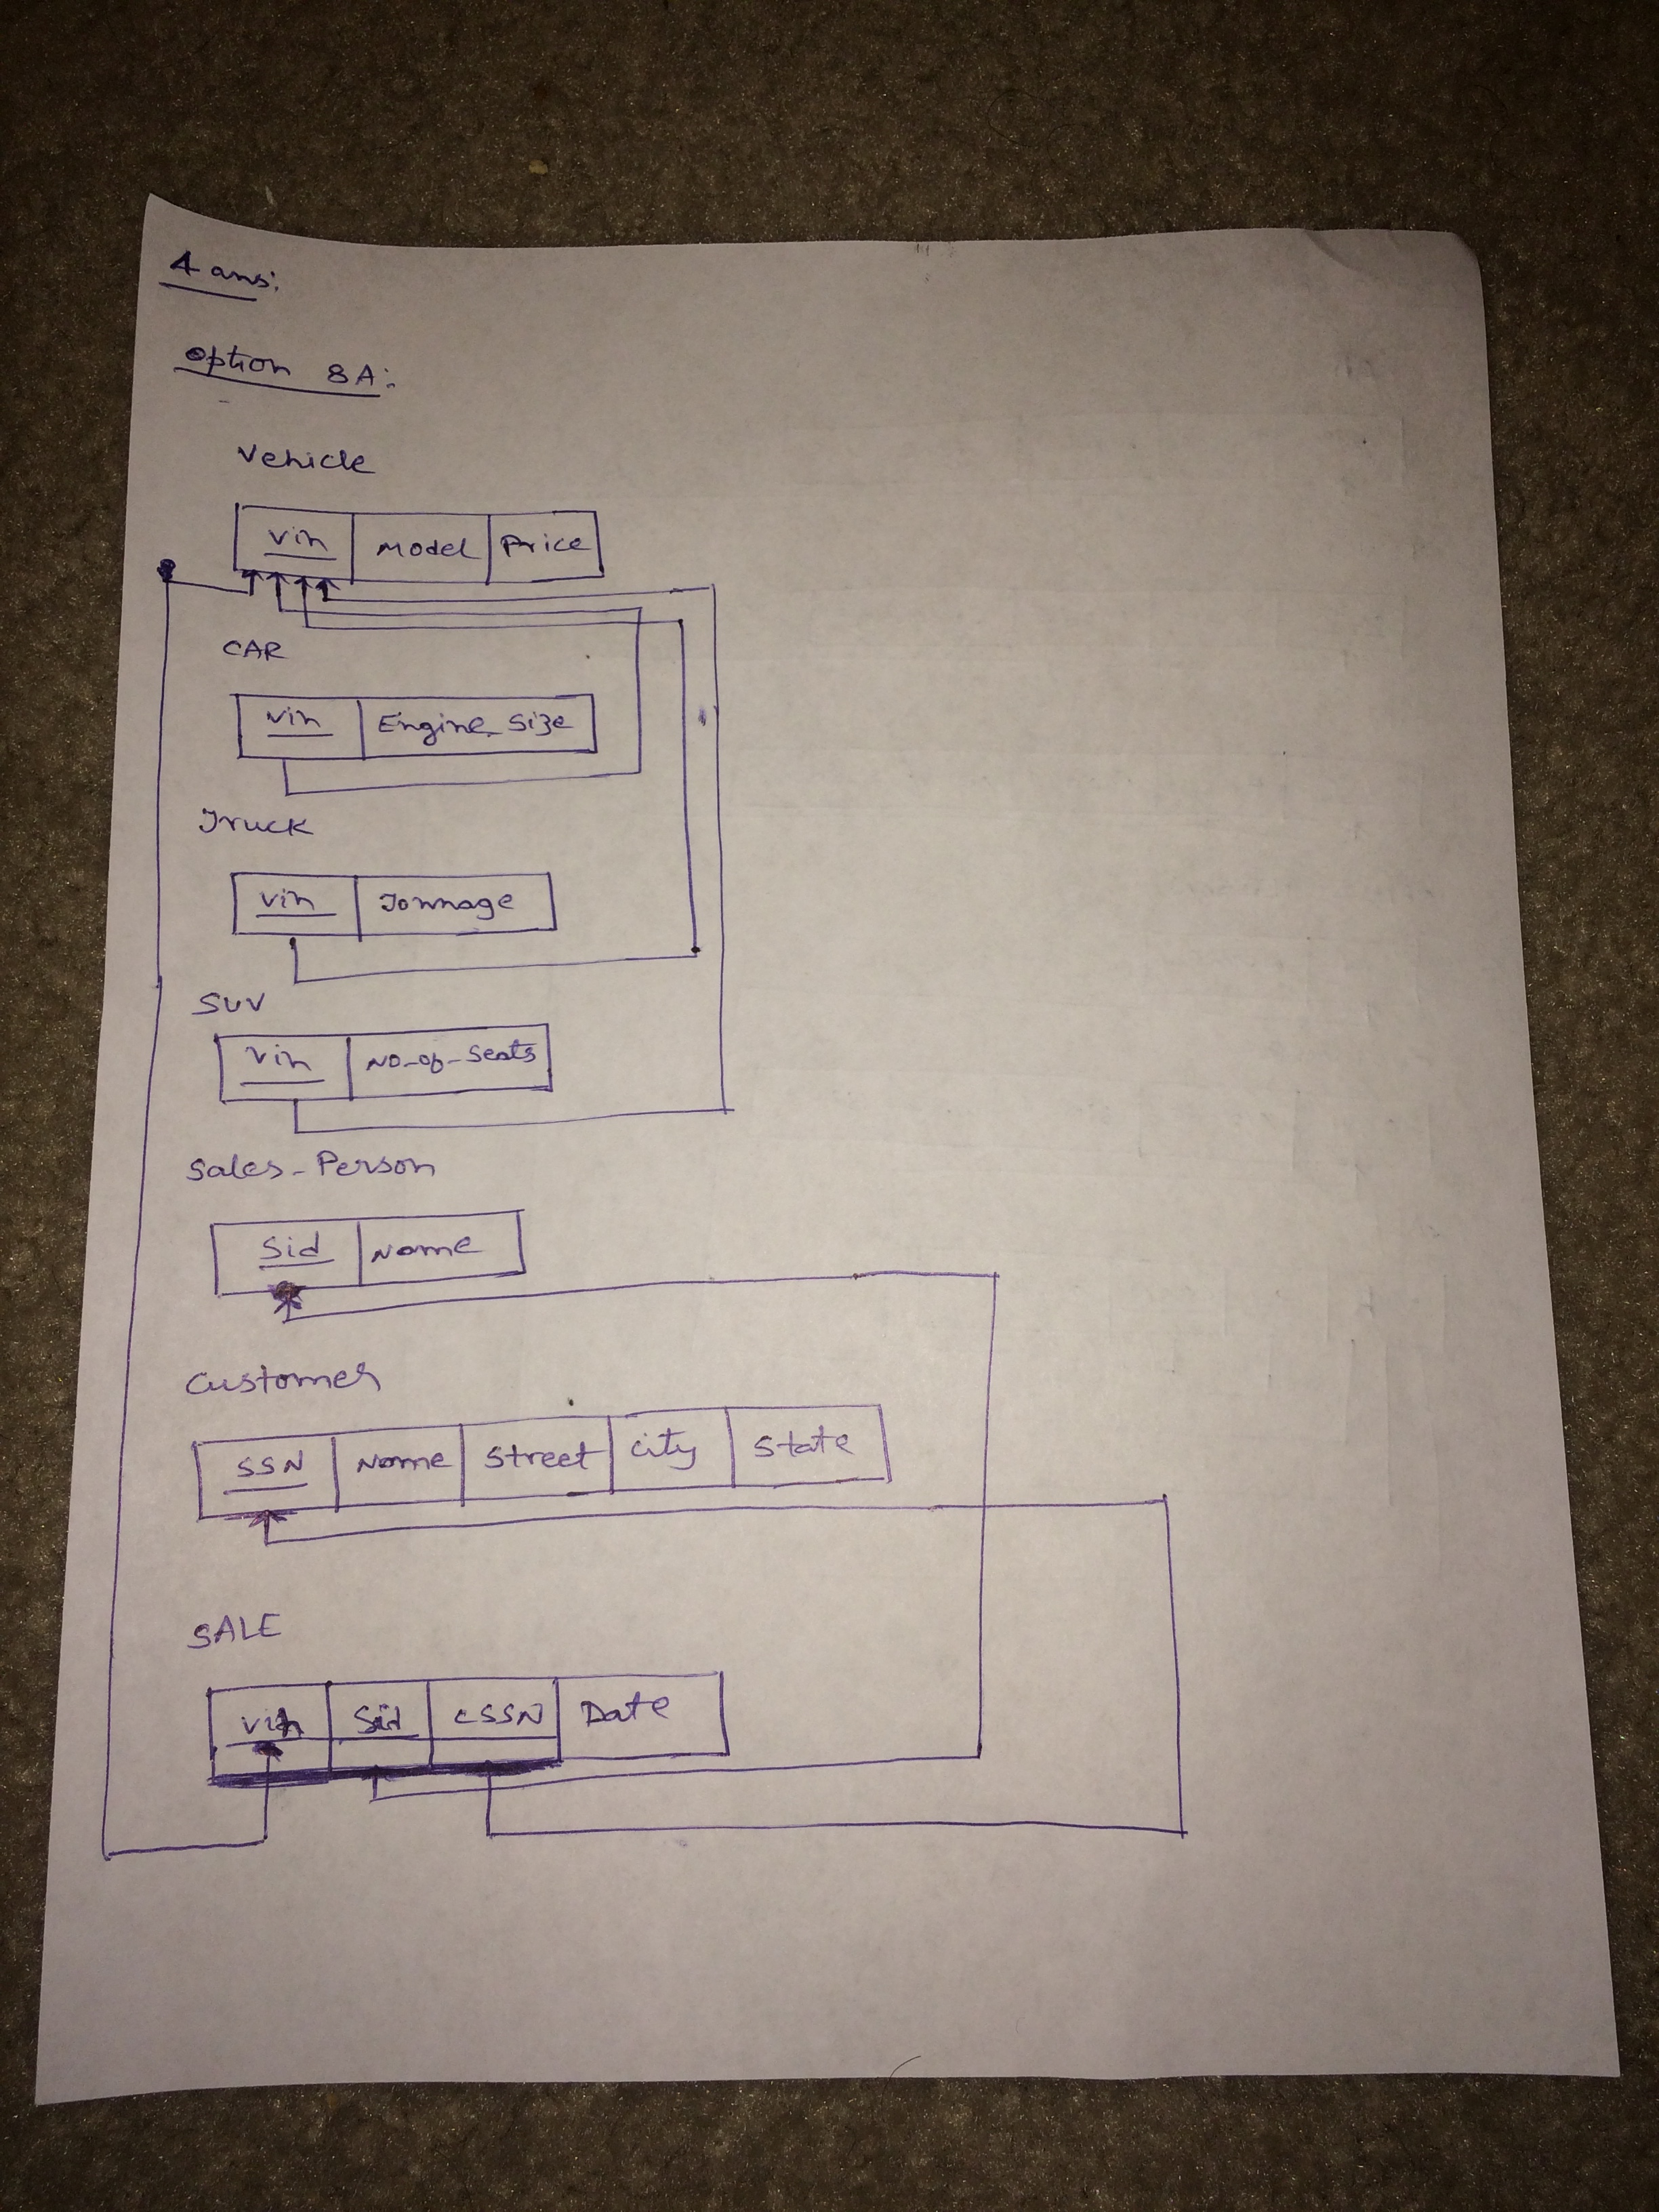 4 ans:
option 8A:
Vehicle
Vin Model Price
CAR
Vin Engine_Size
Truck
Vin Tonnage
SUV
Vin No_of_Seats
Sales-Person
Sid Name
Customer
SSN Name Street City State
SALE
Vin Sid CSSN Date